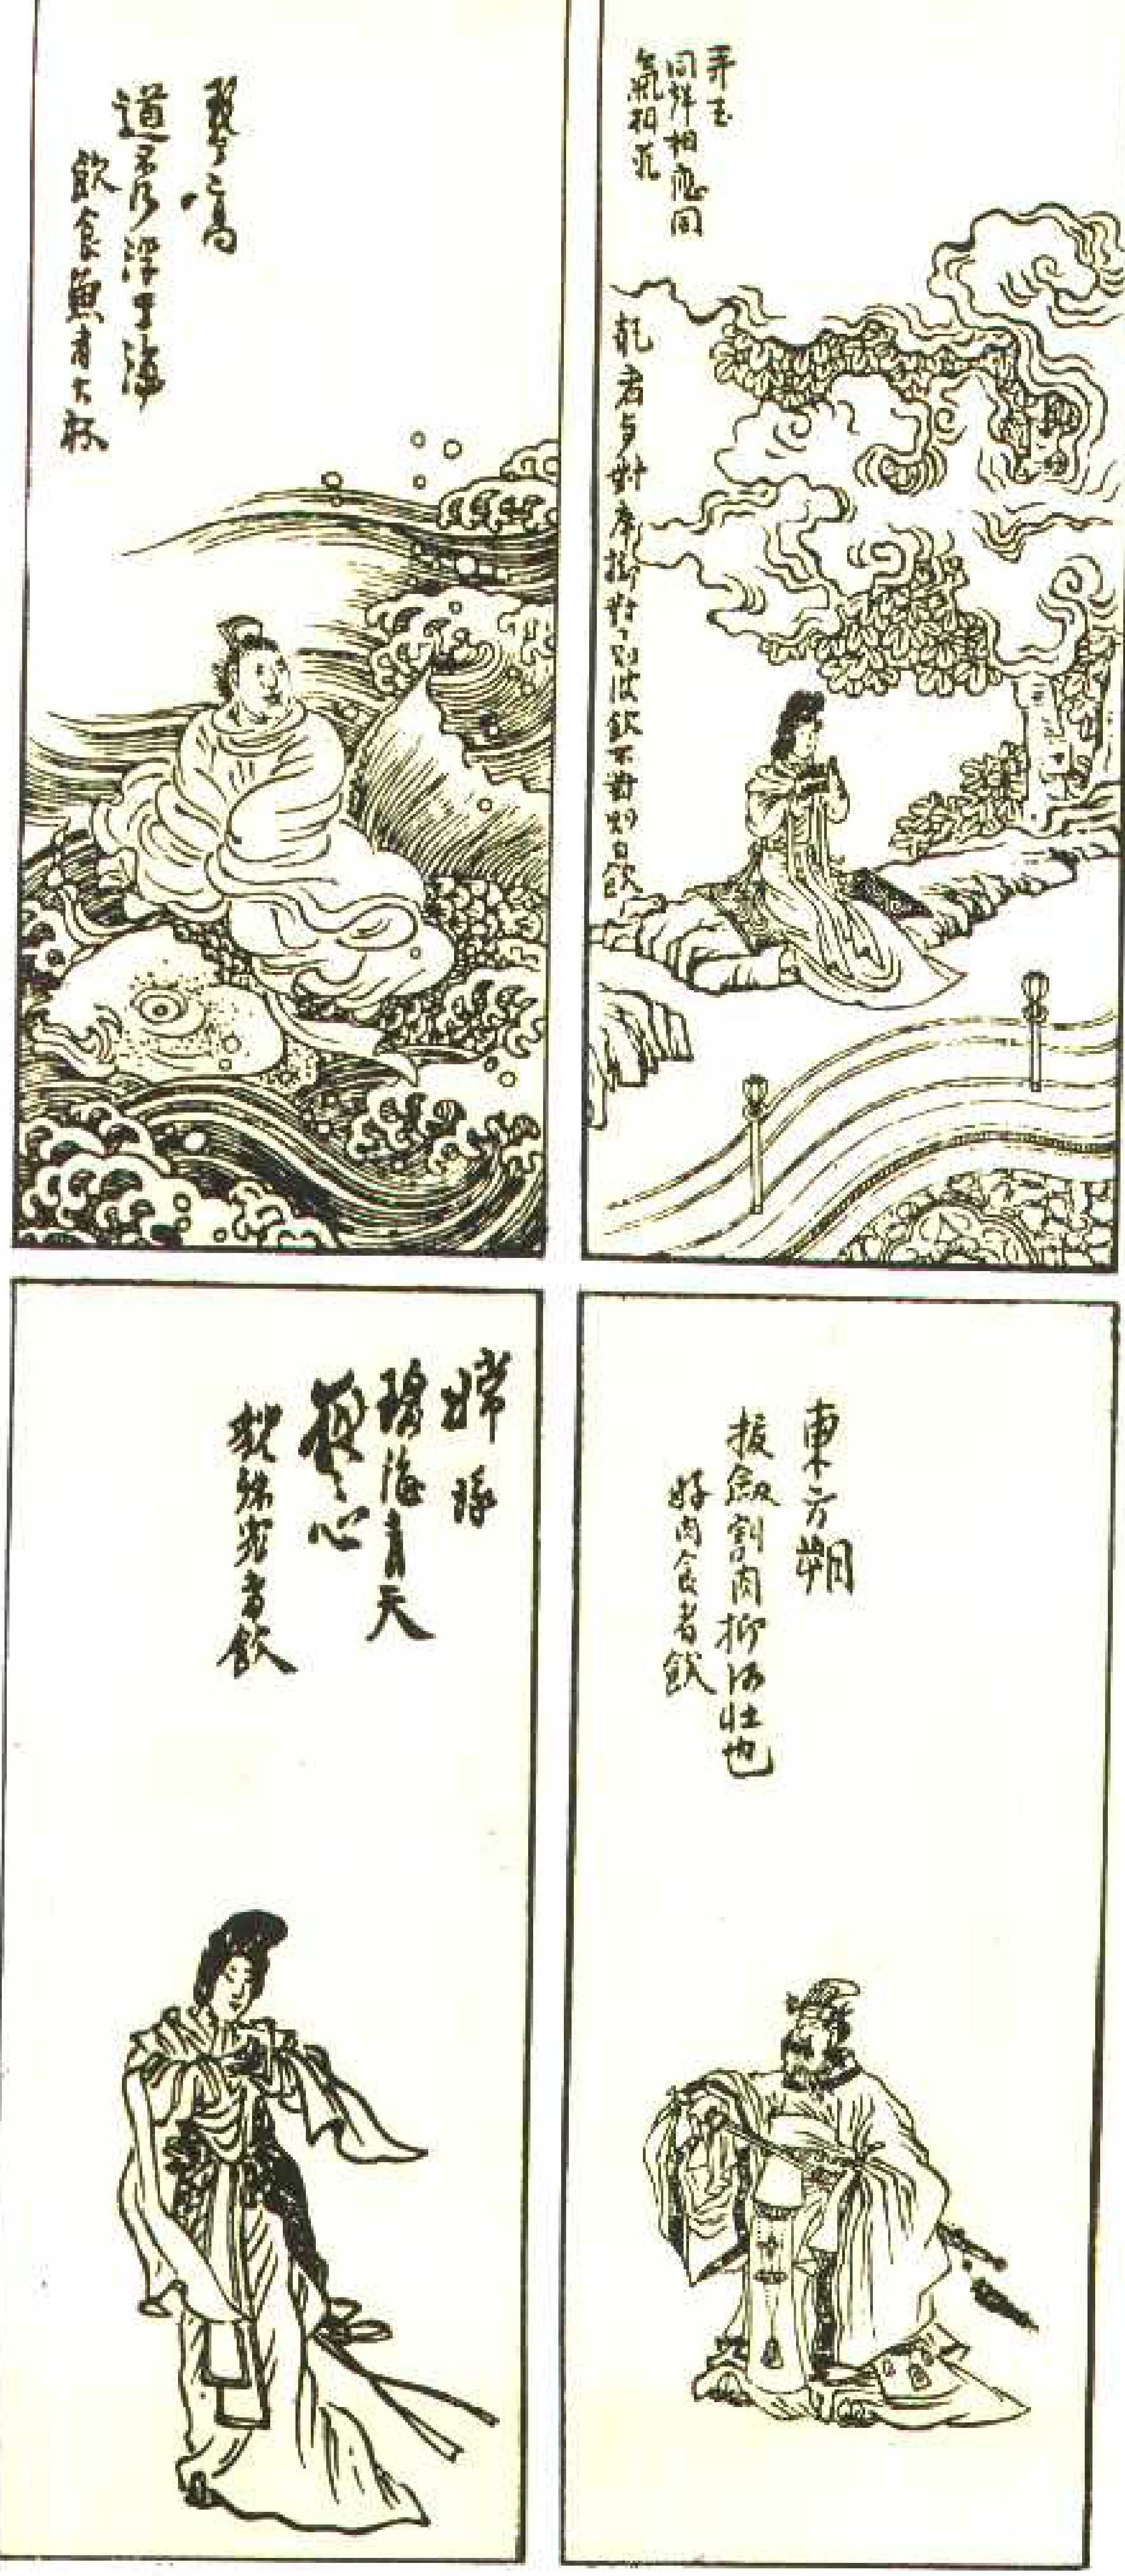 弄玉
同聲相應同
氣相求
能者与對席 對〻則 飲不對則自飲
琴高
道不行浮于海
飲食魚者大杯
東方朔
拔劍割肉抑何壯也
好肉食者飲
嫦娥
碧海青天
夜〻心
貌姝 者飲